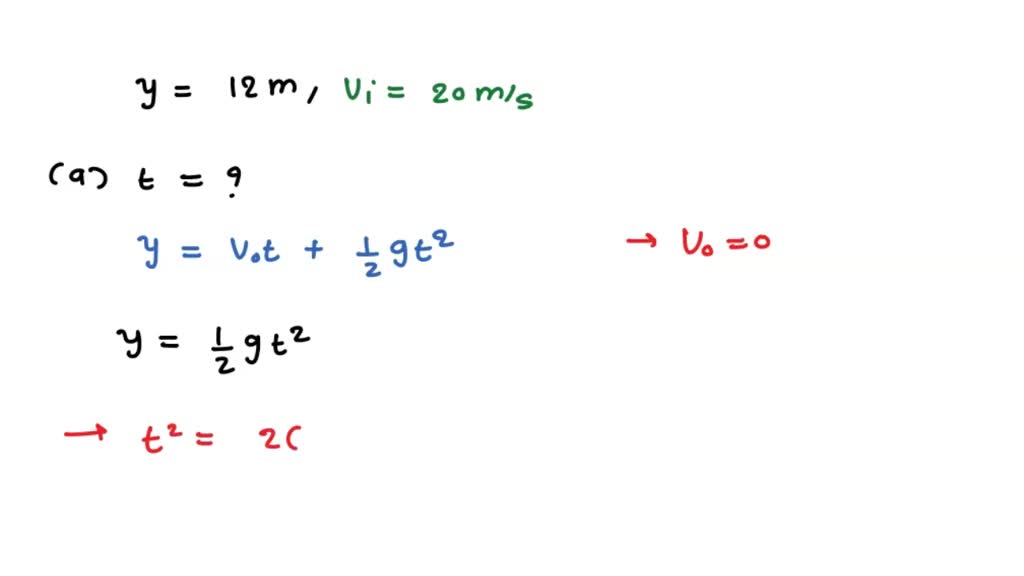 y = 12 m, Vi = 20 m/s
(a) t = ?
y = V₀t + 1/2 gt² → V₀ = 0
y = 1/2 gt²
→ t² = 2(